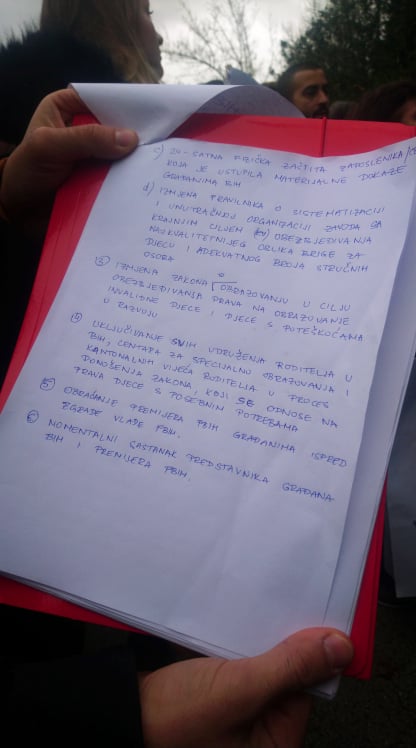 c) 24-SATNA FIZIČKA ZAŠTITA ZAPOSLENIKA/CE
KOJA JE USTUPILA MATERIJALNE DOKAZE
GRAĐANIMA BIH
d) IZMJENA PRAVILNIKA O SISTEMATIZACIJI
I UNUTRAČNJOJ ORGANIZACIJI ZAVODA SA
KRAJNJIM CILJEM OBEZBJEĐIVANJA
NAJKVALITETNIJEG OBLIKA BRIGE ZA
DJECU I ADEKVATNOG BROJA STRUČNIH
OSOBA
③ IZMJENA ZAKONA O OBRAZOVANJU U CILJU
OBEZBJEĐIVANJA PRAVA NA OBRAZOVANJE
INVALIDNE DJECE I DJECE S POTEŠKOĆAMA
U RAZVOJU
④ UKLJUČIVANJE SVIH UDRUŽENJA RODITELJA U
BIH, CENTARA ZA SPECIJALNO OBRAZOVANJE I
KANTONALNIH VIJEĆA RODITELJA U PROCES
DONOŠENJA ZAKONA, KOJI SE ODNOSE NA
PRAVA DJECE S POSEBNIM POTREBAMA
⑤ OBRAĆANJE PREMIJERA FBIH GRAĐANIMA ISPRED
ZGRADE VLADE FBIH.
⑥ MOMENTALNI SASTANAK PREDSTAVNIKA GRAĐANA
BIH I PREMIJERA FBIH.